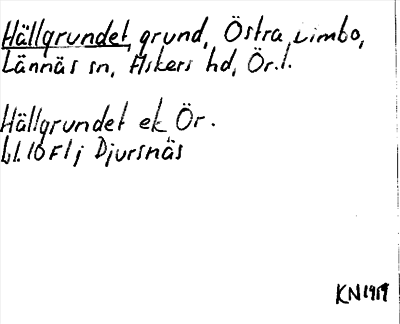 Hällgrundet, grund, Östra Limbo,
Lännäs sn, Askers hd, Ör. l.
Hällgrundet ek Ör.
bl. 10F1j Djursnäs
KN1959